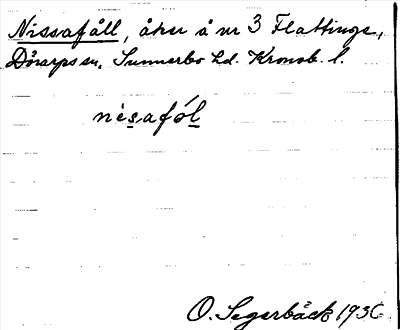 Nissafåll, åker å nr 3 Flattinge,
Dörarps sn. Sunnerbo hd. Kronob. l.
nisafól
O. Segerbäck 1936